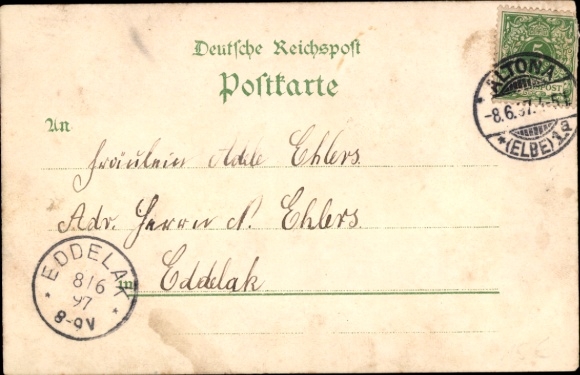 Deutsche Reichspost
Postkarte
5
ALTONA
-8.6.97. 4-5
*(ELBE) 3.a
An
Fräulein Adele Ehlers.
Adr. Herrn N. Ehlers.
in Eddelak
EDDELAK
8/6
97
8-9V